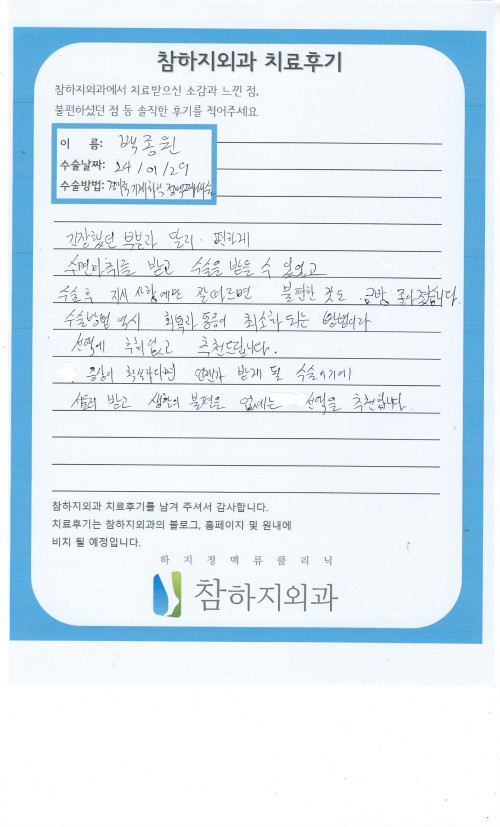 참하지외과 치료후기
참하지외과에서 치료받으신 소감과 느낀 점,
불편하셨던 점 등 솔직한 후기를 적어주세요
이 름: 백종원
수술날짜: 24/01/29
수술방법: 경피적 기계화학 정맥폐쇄술
긴장했던 부분과 달리. 편하게
수면마취를 받고 수술을 받을 수 있었고
수술 후 지시 사항에만 잘따르면 불편한 것도 금방 좋아졌습니다.
수술방법 역시 회복과 통증이 최소화 되는 방법이라
선택에 후회 없고 추천드립니다.
증상이 확실하다면 언젠가 받게 될 수술이기에
받고 생활의 불편을 없애는 선택을 추천합니다.
참하지외과 치료후기를 남겨 주셔서 감사합니다.
치료후기는 참하지외과의 블로그, 홈페이지 및 원내에
비치 될 예정입니다.
하지정맥류클리닉
참하지외과